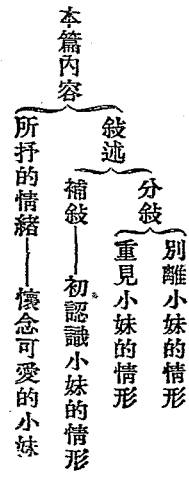 本篇內容
敍述
分敍
別離小妹的情形
重見小妹的情形
補敍——初認識小妹的情形
所抒的情緒——懷念可愛的小妹